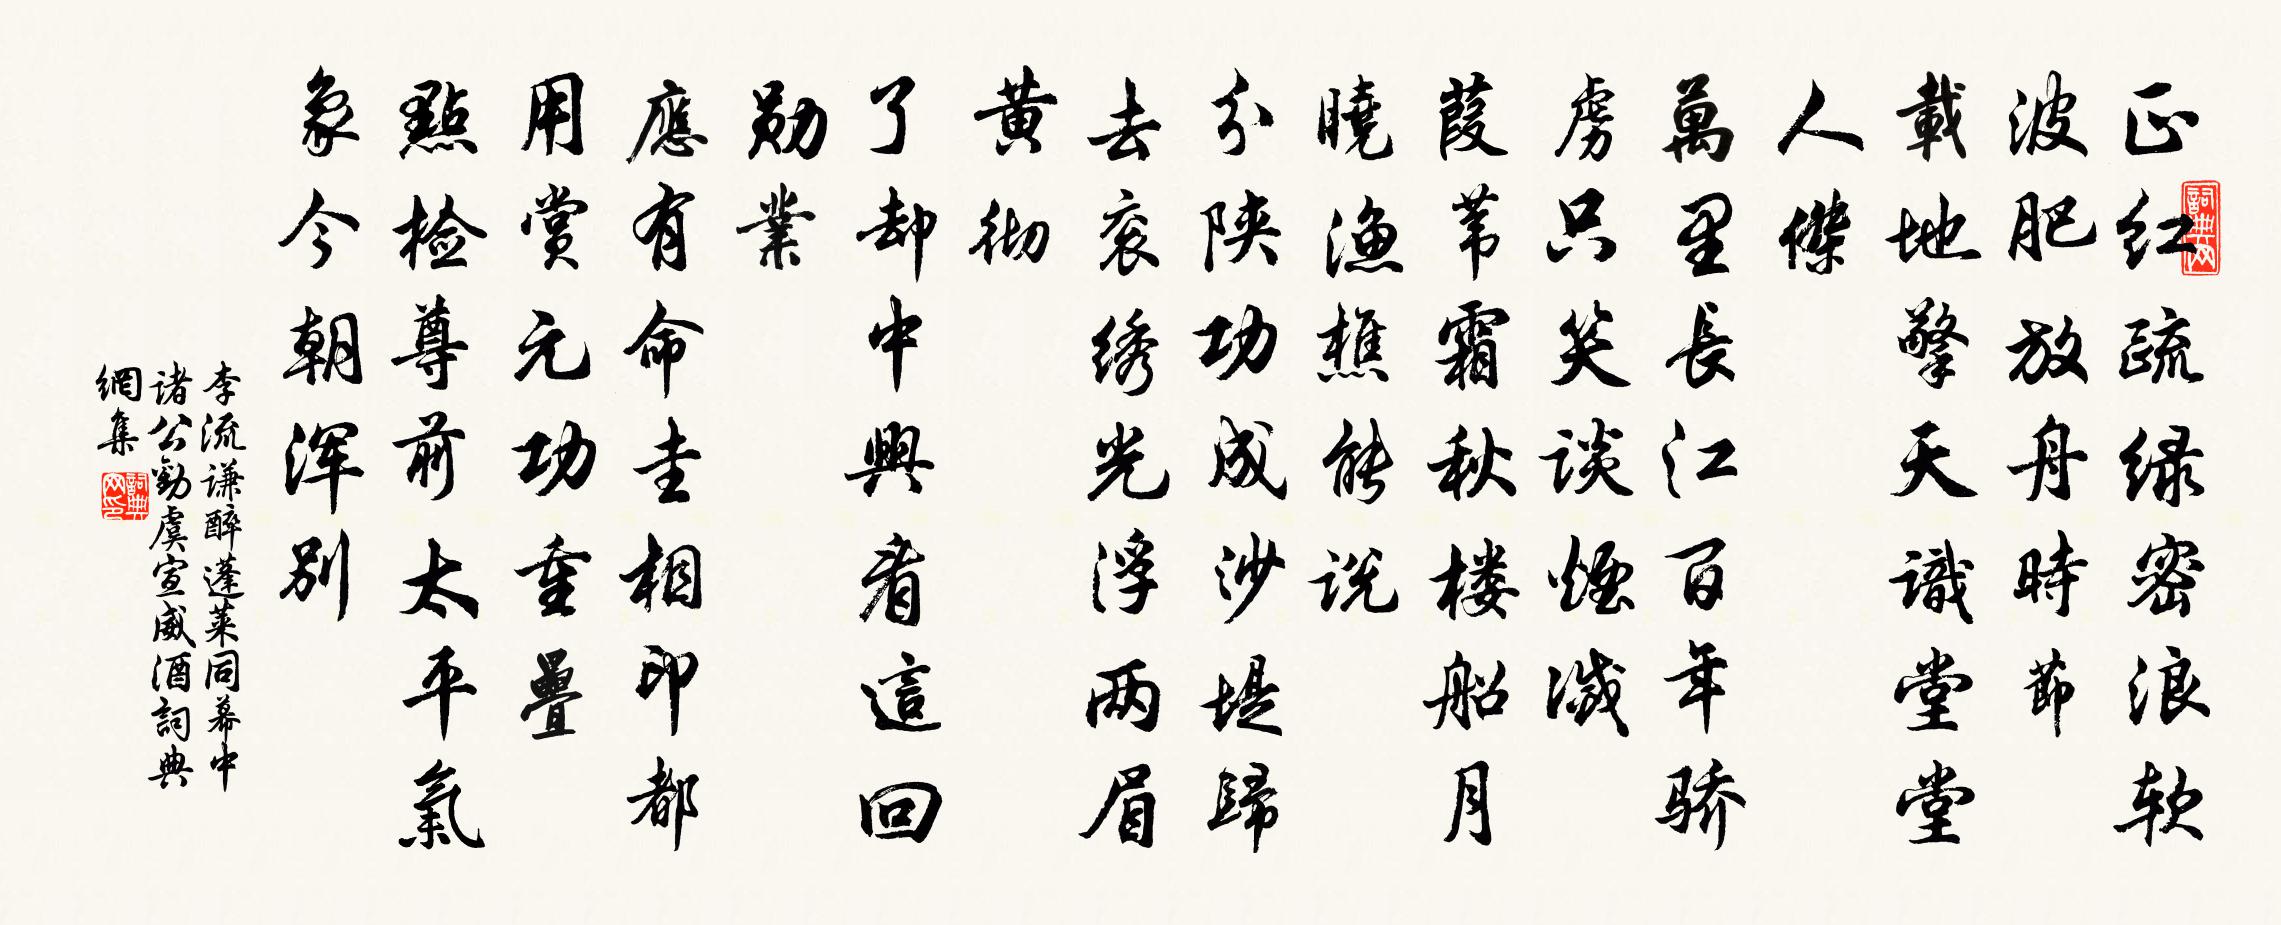 正红疏绿密浪软
波肥放舟時節
載地擎天識堂堂
人傑
萬里長江百年骄
虏只笑谈煙滅
葭苇霜秋楼船月
曉漁樵能说
分陕功成沙堤歸
去衮绣光浮两眉
黄彻
了却中興看這回
勋業
應有命圭相印都
用赏元功重疊
點檢尊前太平氣
象今朝浑别
李流谦醉蓬莱同幕中
诸公勸虞宣威酒詞典
網集
詞典网
詞典网印